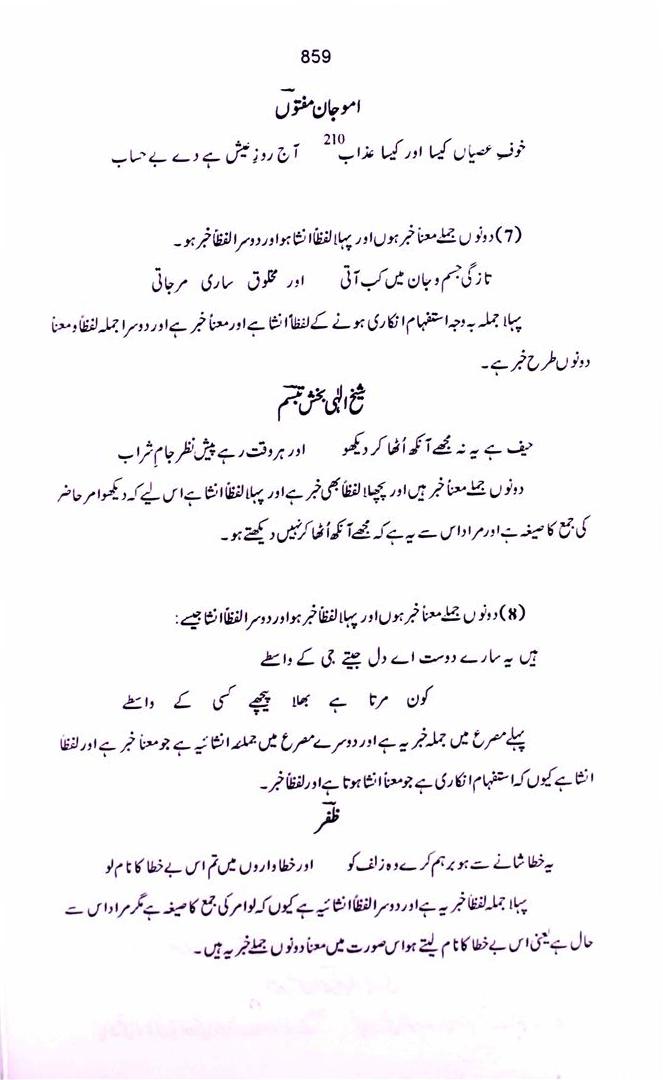 859
امو جان مفتوںؔ
خوفِ عصیاں کیسا اور کیسا عذاب210 آج روزِ عیش ہے دے بے حساب
(7) دونوں جملے معناً خبر ہوں اور پہلا لفظاً انشا ہو اور دوسرا لفظاً خبر ہو۔
تازگی جسم و جان میں کب آتی اور مخلوق ساری مر جاتی
پہلا جملہ بہ وجہ استفہام انکاری ہونے کے لفظاً انشا ہے اور معناً خبر ہے اور دوسرا جملہ لفظاً و معناً
دونوں طرح خبر ہے۔
شیخ الٰہی بخش تبسمؔ
حیف ہے یہ نہ مجھے آنکھ اُٹھا کر دیکھو اور ہر وقت رہے پیش نظر جامِ شراب
دونوں جملے معناً خبر ہیں اور پچھلا لفظاً بھی خبر ہے اور پہلا لفظاً انشا ہے اس لیے کہ دیکھو امر حاضر
کی جمع کا صیغہ ہے اور مراد اس سے یہ ہے کہ مجھے آنکھ اُٹھا کر نہیں دیکھتے ہو۔
(8) دونوں جملے معناً خبر ہوں اور پہلا لفظاً خبر ہو اور دوسرا لفظاً انشا جیسے:
ہیں یہ سارے دوست اے دل جیتے جی کے واسطے
کون مرتا ہے بھلا پیچھے کسی کے واسطے
پہلے مصرع میں جملہ خبریہ ہے اور دوسرے مصرع میں جملۂ انشائیہ ہے جو معناً خبر ہے اور لفظاً
انشا ہے کیوں کہ استفہام انکاری ہے جو معناً انشا ہوتا ہے اور لفظاً خبر۔
ظفرؔ
یہ خطا شانے سے ہو برہم کرے وہ زلف کو اور خطاواروں میں تم اس بے خطا کا نام لو
پہلا جملہ لفظاً خبریہ ہے اور دوسرا لفظاً انشائیہ ہے کیوں کہ لو امر کی جمع کا صیغہ ہے مگر مراد اس سے
حال ہے یعنی اس بے خطا کا نام لیتے ہو اس صورت میں معناً دونوں جملے خبریہ ہیں۔